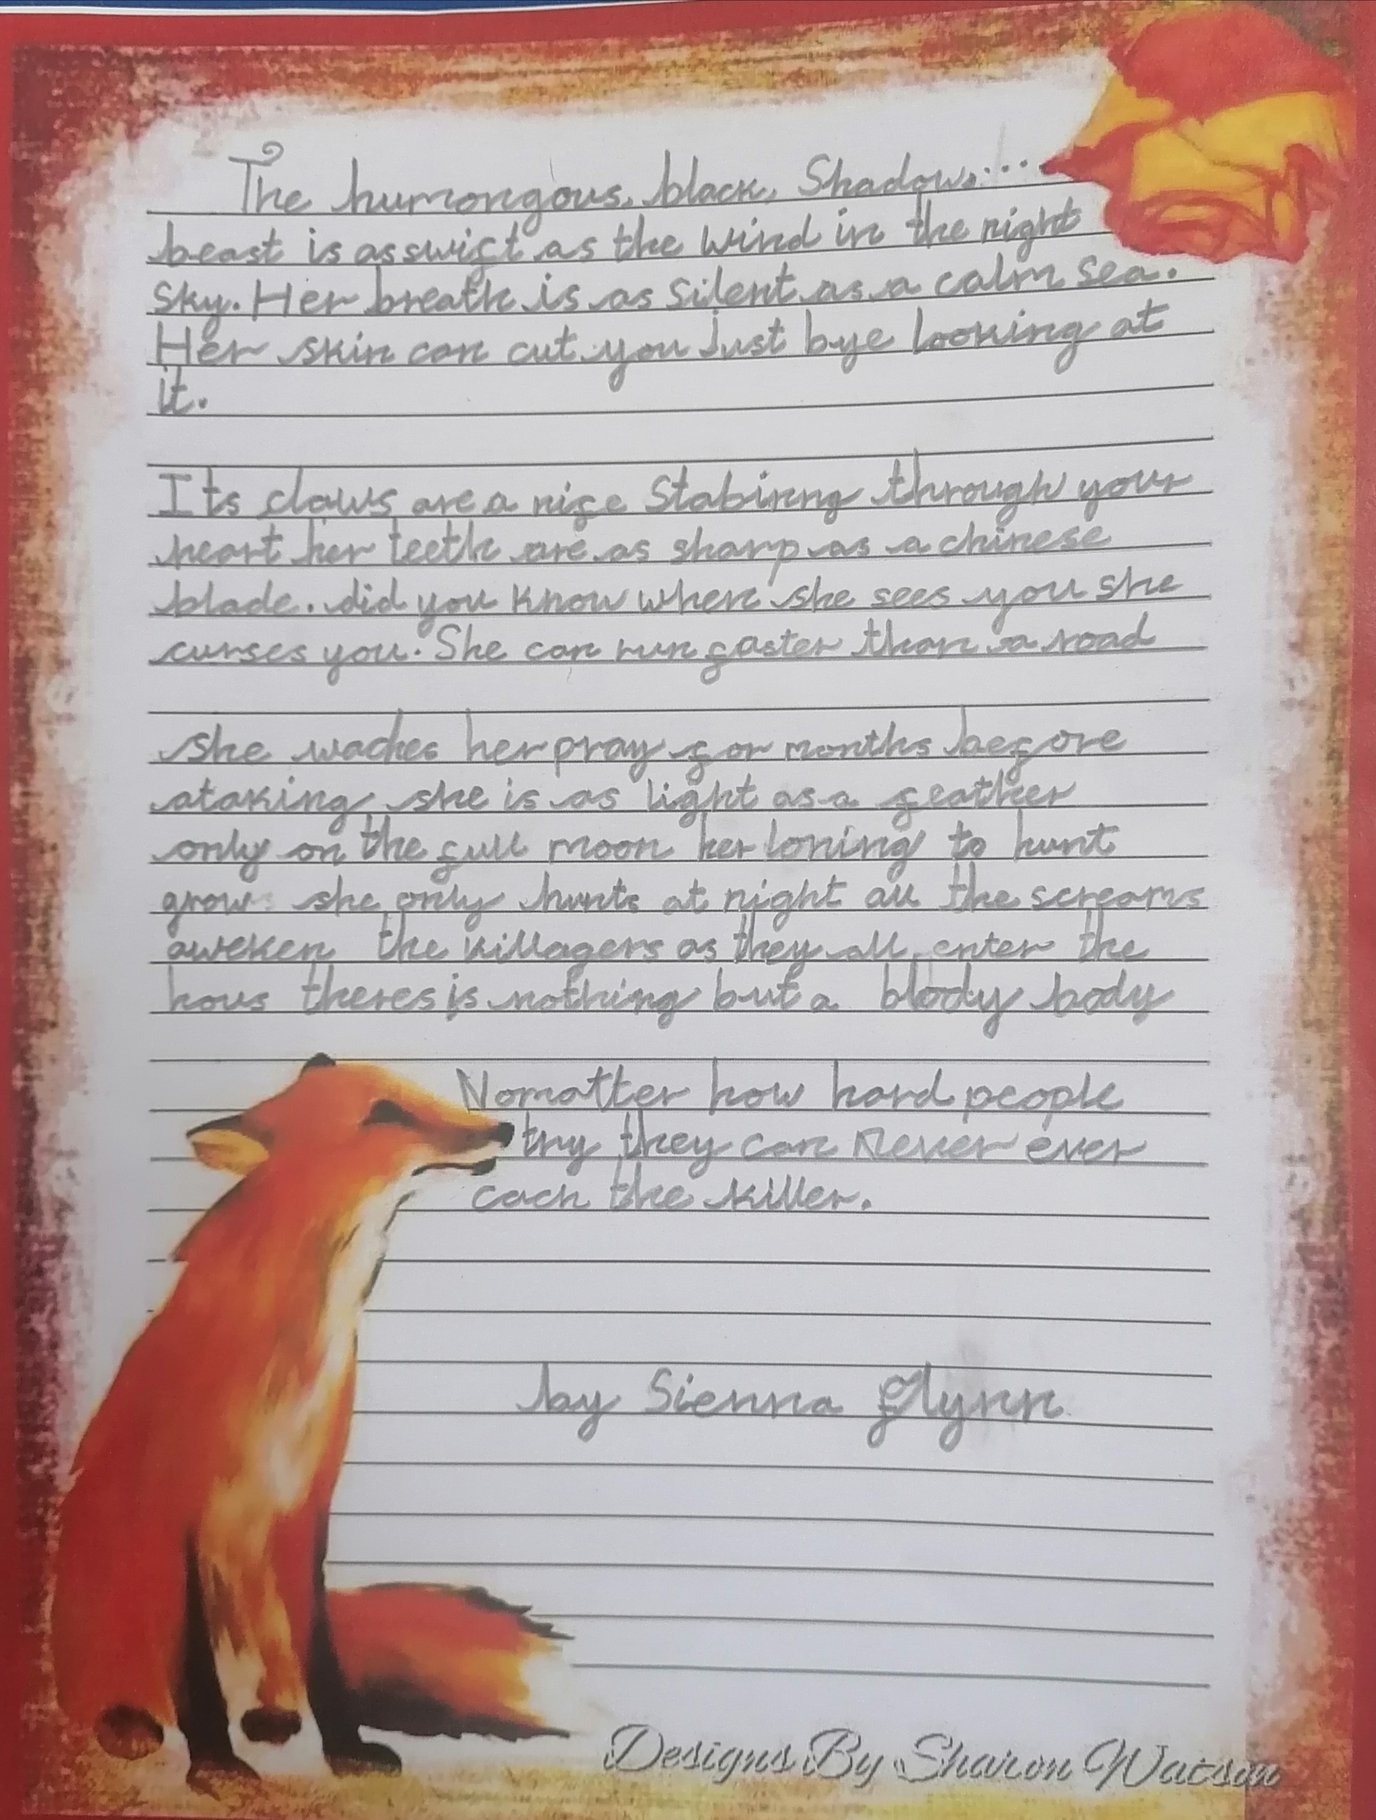 The humongous, black, Shadow....
beast is as swift as the wind in the night
sky. Her breath is as silent as a calm sea.
Her skin can cut you just bye looking at
it.
Its claws are a nife Stabinng through your
heart her teeth are as sharp as a chinese
blade. did you know when she sees you she
curses you. She can run faster than a road
she waches her pray for months before
ataking she is as light as a feather
only on the full moon her loning to hunt
grow she only hunts at night all the screams
aweken the killagers as they all enter the
hous theres is nothing but a bloody body
No matter how hard people
try they can never ever
cach the killer.
by Sienna glynn
Designs By Sharon Watson